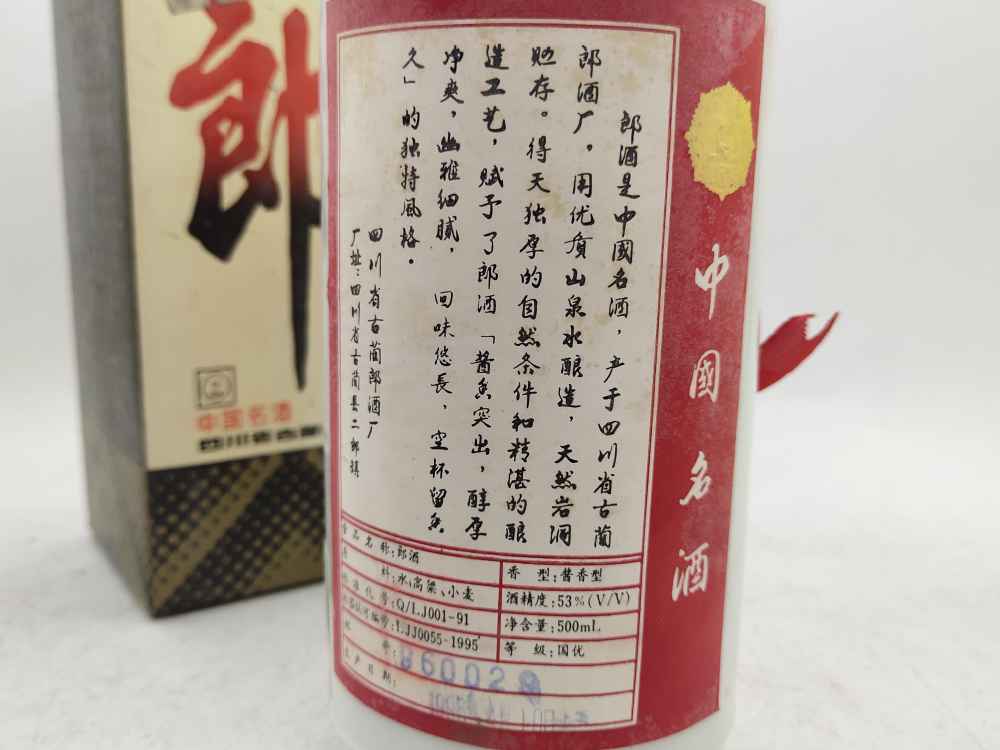 郎
中国名酒
郎酒是中國名酒，产于四川省古蔺
郎酒厂。用优质山泉水酿造，天然岩洞
贮存。得天独厚的自然条件和精湛的酿
造工艺，赋予了郎酒「酱香突出，醇厚
净爽，幽雅细腻，回味悠長，空杯留香
久」的独特風格。
四川省古蔺郎酒厂
厂址：四川省古蔺县二郎镇
食品名称：郎酒
原料：水、高粱、小麦
标准代号：Q/LJ001-91
LJJ0055-1995
生产日期：
香型：酱香型
酒精度：53%(V/V)
净含量：500mL
等级：国优
中國名酒